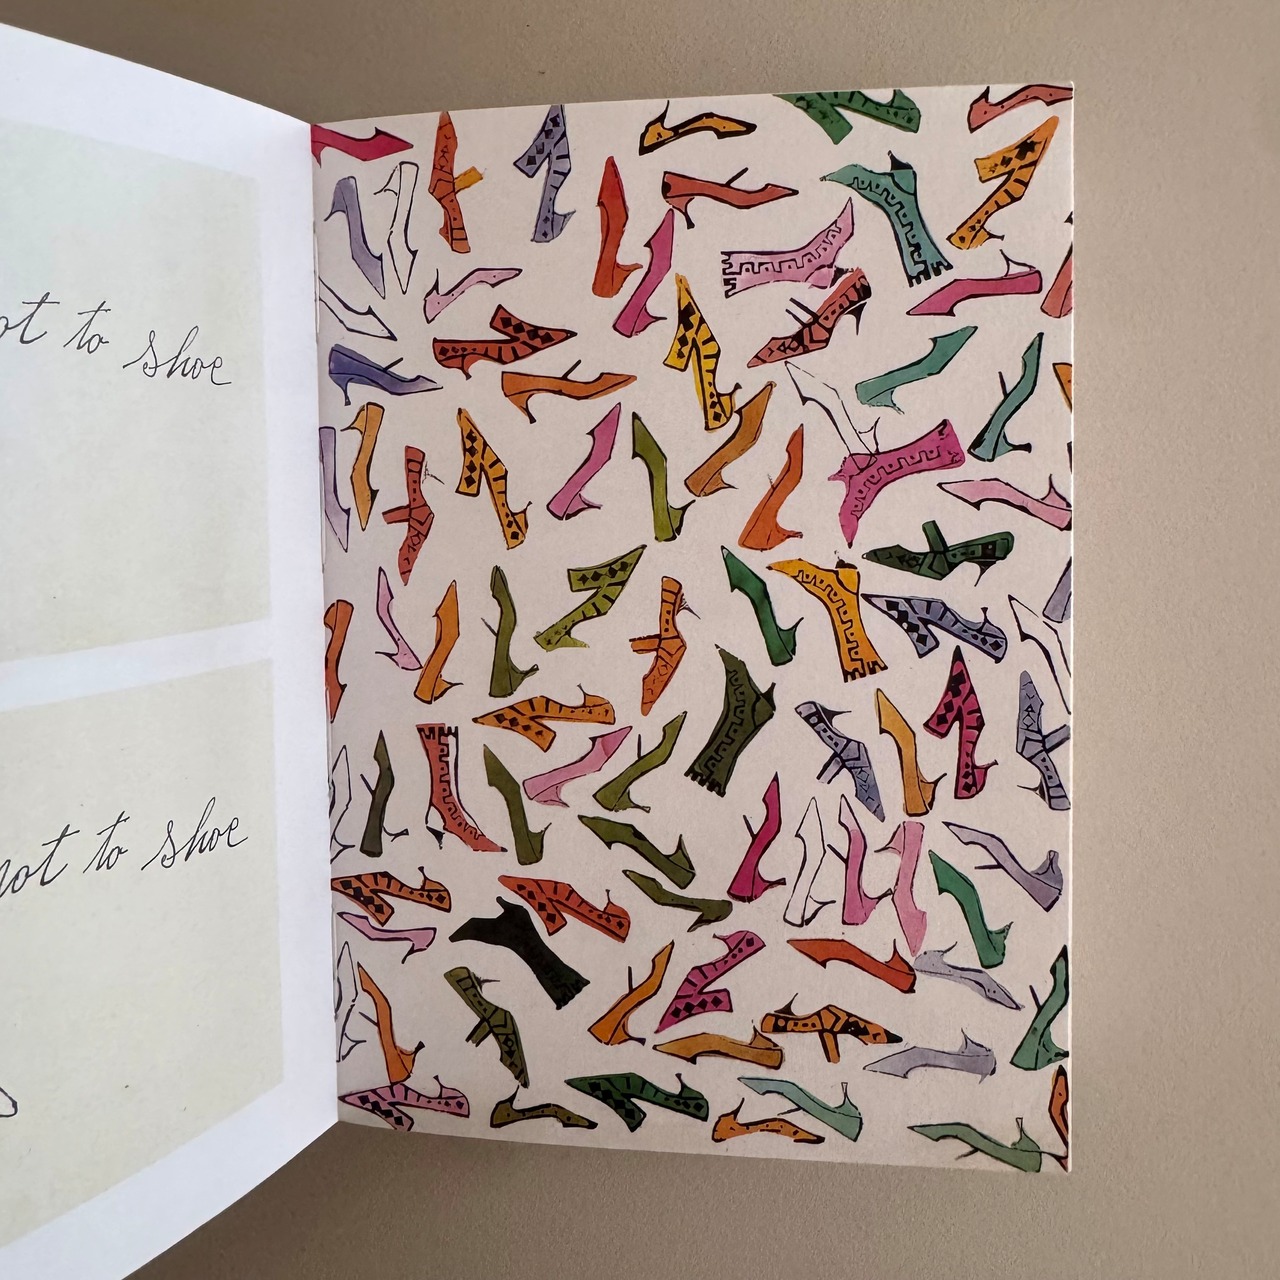 to shoe
not to shoe